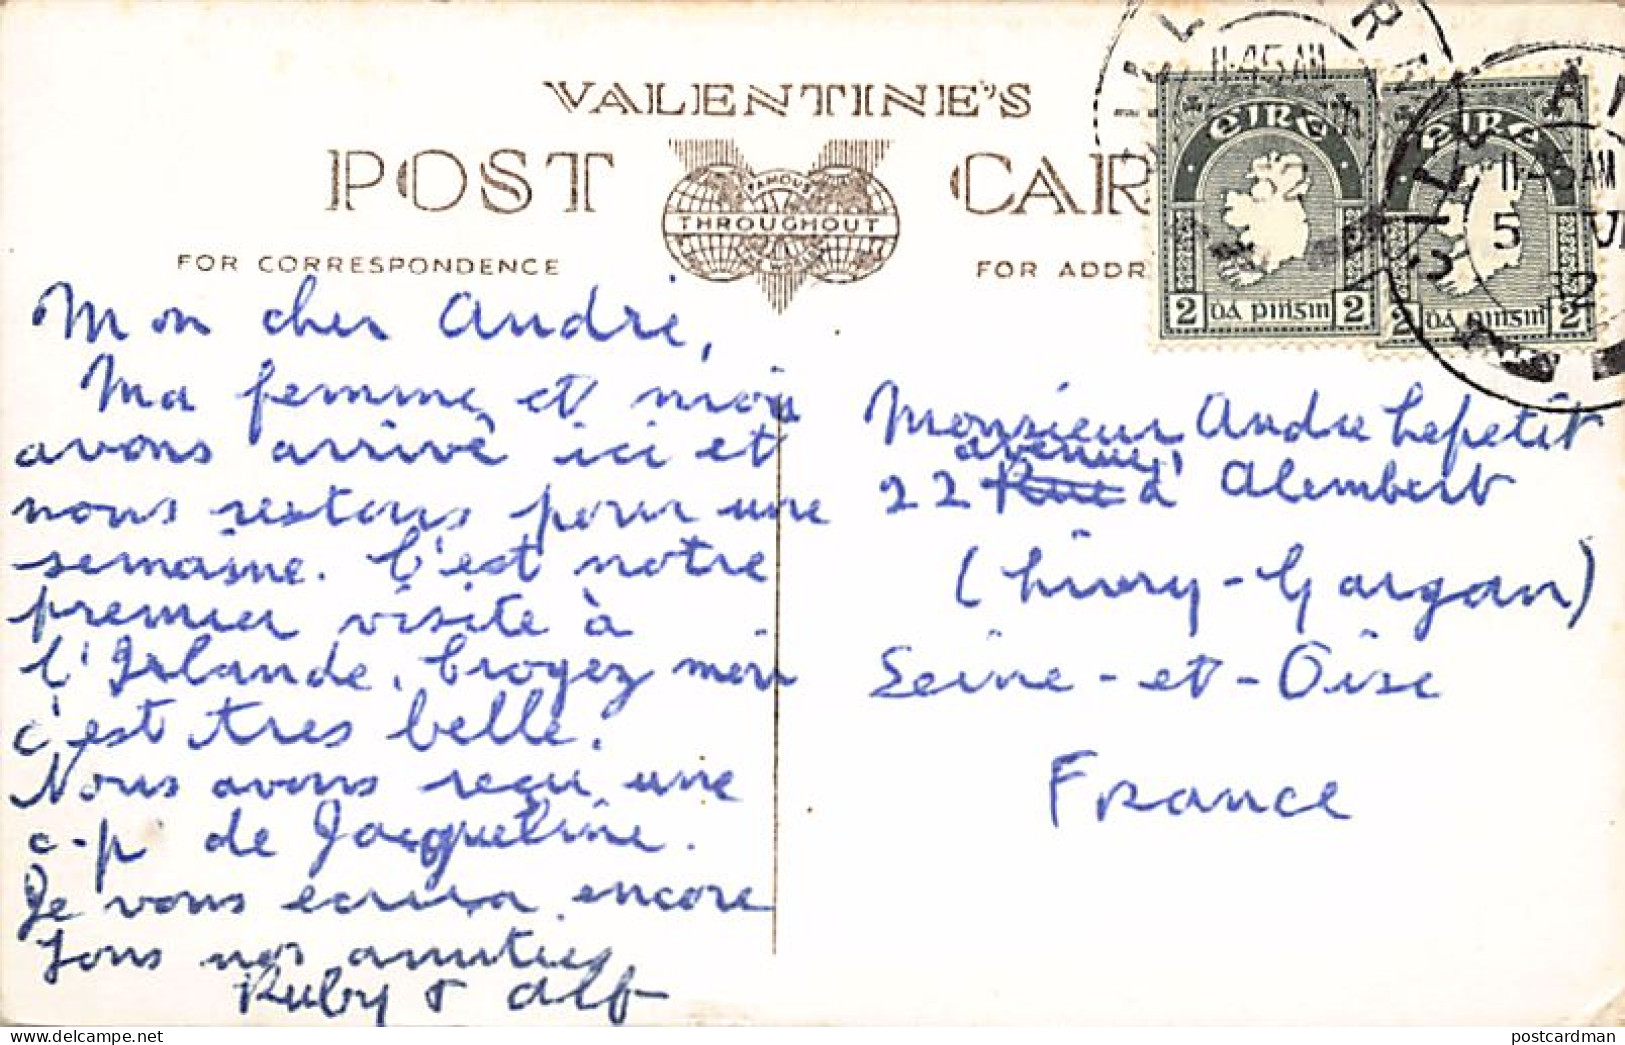 VALENTINE'S
POST CAR
FAMOUS
THROUGHOUT
FOR CORRESPONDENCE
FOR ADDR
11.45 AM
11.45 AM
5
EIRE
EIRE
2 DA PINGIN 2
2 DA PINGIN 2
Mon cher André,
Ma femme et moi
avons arrivé ici et
nous restons pour une
semaine. C'est notre
premier visite à
l'Irlande. Croyez moi
c'est tres belle.
Nous avons reçu une
c-p de Jacqueline.
Je vous ecrira encore
Tous nos amities
Ruby & Alf
Monsieur Andre Lepetit
avenue
22 Rue d'Alembert
(Livry-Gargan)
Seine-et-Oise
France
postcardman